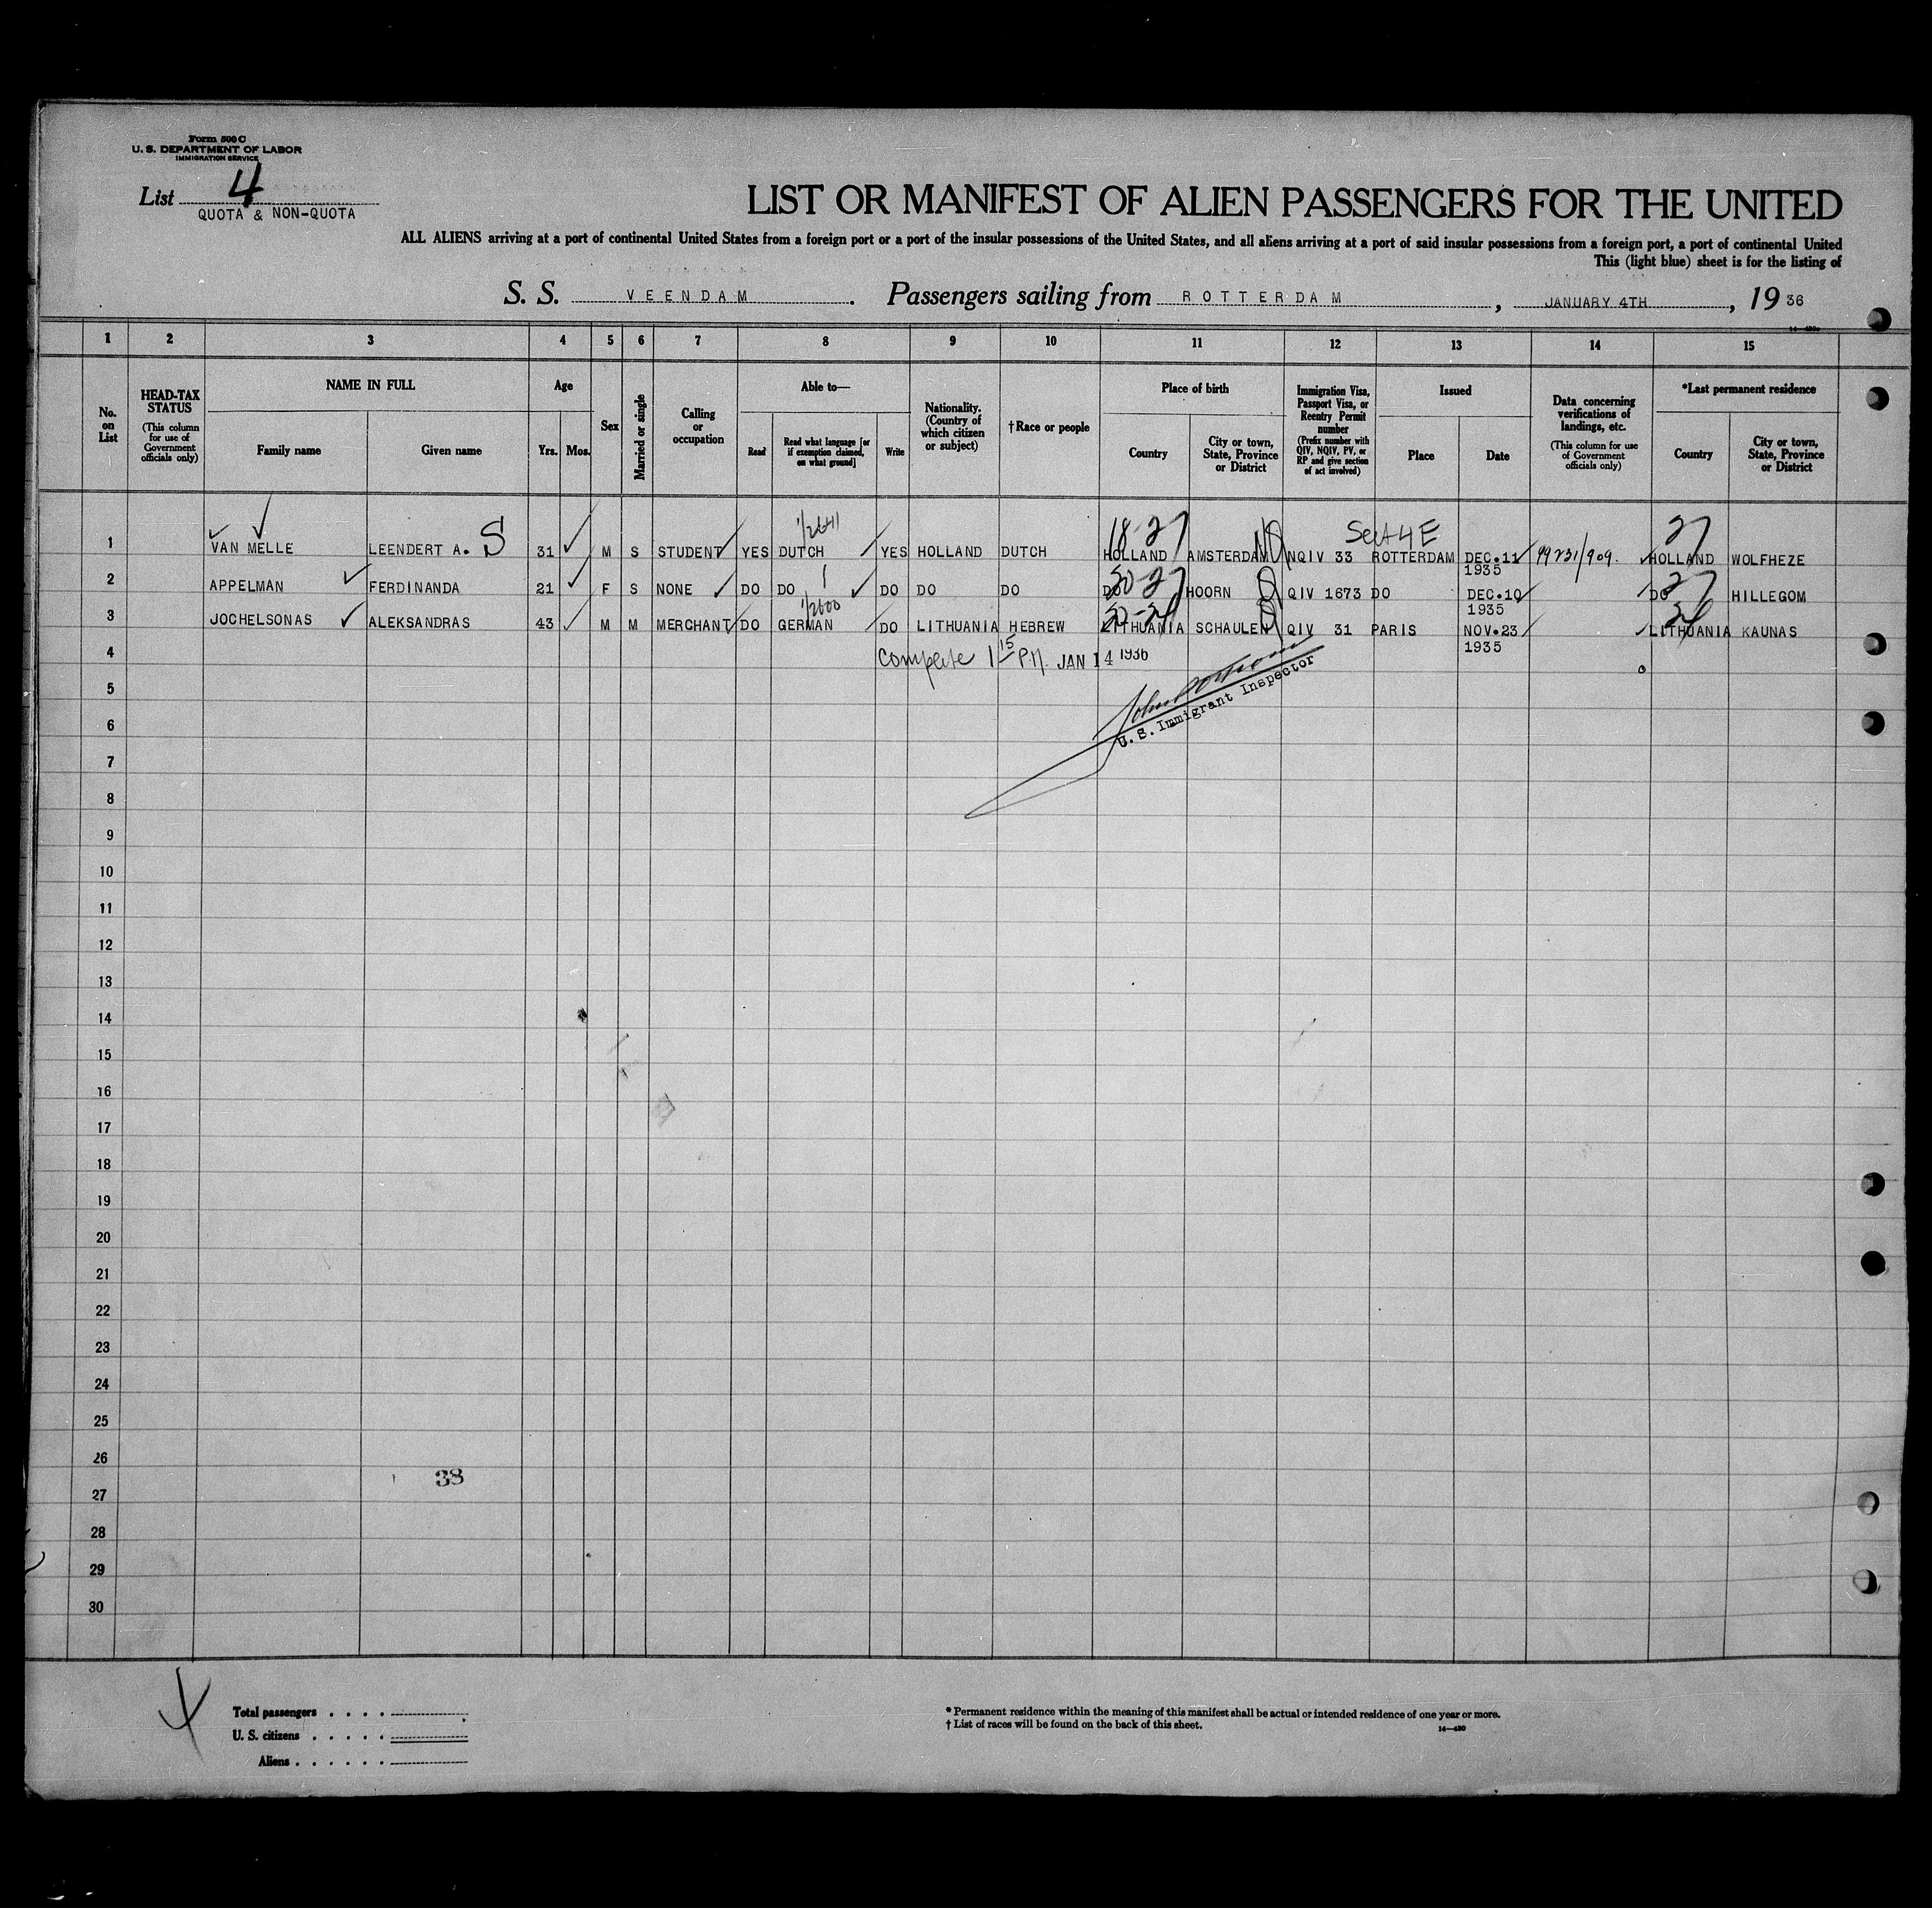 Form 500 C
U. S. DEPARTMENT OF LABOR
IMMIGRATION SERVICE
List 4
QUOTA & NON-QUOTA
LIST OR MANIFEST OF ALIEN PASSENGERS FOR THE UNITED
ALL ALIENS arriving at a port of continental United States from a foreign port or a port of the insular possessions of the United States, and all aliens arriving at a port of said insular possessions from a foreign port, a port of continental United
This (light blue) sheet is for the listing of
S. S. VEENDAM. Passengers sailing from ROTTERDAM, JANUARY 4TH, 1936
1 2 3 4 5 6 7 8 9 10 11 12 13 14 15
No. on List
HEAD-TAX STATUS (This column for use of Government officials only)
NAME IN FULL
Family name Given name
Age
Yrs. Mos.
Sex
Married or single
Calling or occupation
Able to—
Read Read what language [or if exemption claimed, on what ground] Write
Nationality. (Country of which citizen or subject)
†Race or people
Place of birth
Country City or town, State, Province or District
Immigration Visa, Passport Visa, or Reentry Permit number (Prefix number with QIV, NQIV, PV, or RP and give section of act involved)
Issued
Place Date
Data concerning verifications of landings, etc. (This column for use of Government officials only)
*Last permanent residence
Country City or town, State, Province or District
18-27 Sect 4 E 27
1 VAN MELLE LEENDERT A. S 31 M S STUDENT YES DUTCH YES HOLLAND DUTCH HOLLAND AMSTERDAM NQIV 33 ROTTERDAM DEC.11 1935 99231/909. HOLLAND WOLFHEZE
2 APPELMAN FERDINANDA 21 F S NONE DO DO DO DO DO DO HOORN QIV 1673 DO DEC.10 1935 DO HILLEGOM
3 JOCHELSONAS ALEKSANDRAS 43 M M MERCHANT DO GERMAN DO LITHUANIA HEBREW LITHUANIA SCHAULEN QIV 31 PARIS NOV.23 1935 LITHUANIA KAUNAS
4 Complete 1 15 P.M. JAN 14 1936
U. S. Immigrant Inspector
5
6
7
8
9
10
11
12
13
14
15
16
17
18
19
20
21
22
23
24
25
26
38
27
28
29
30
Total passengers . . . .
U. S. citizens . . . . .
Aliens . . . . . .
* Permanent residence within the meaning of this manifest shall be actual or intended residence of one year or more.
† List of races will be found on the back of this sheet.
14—430